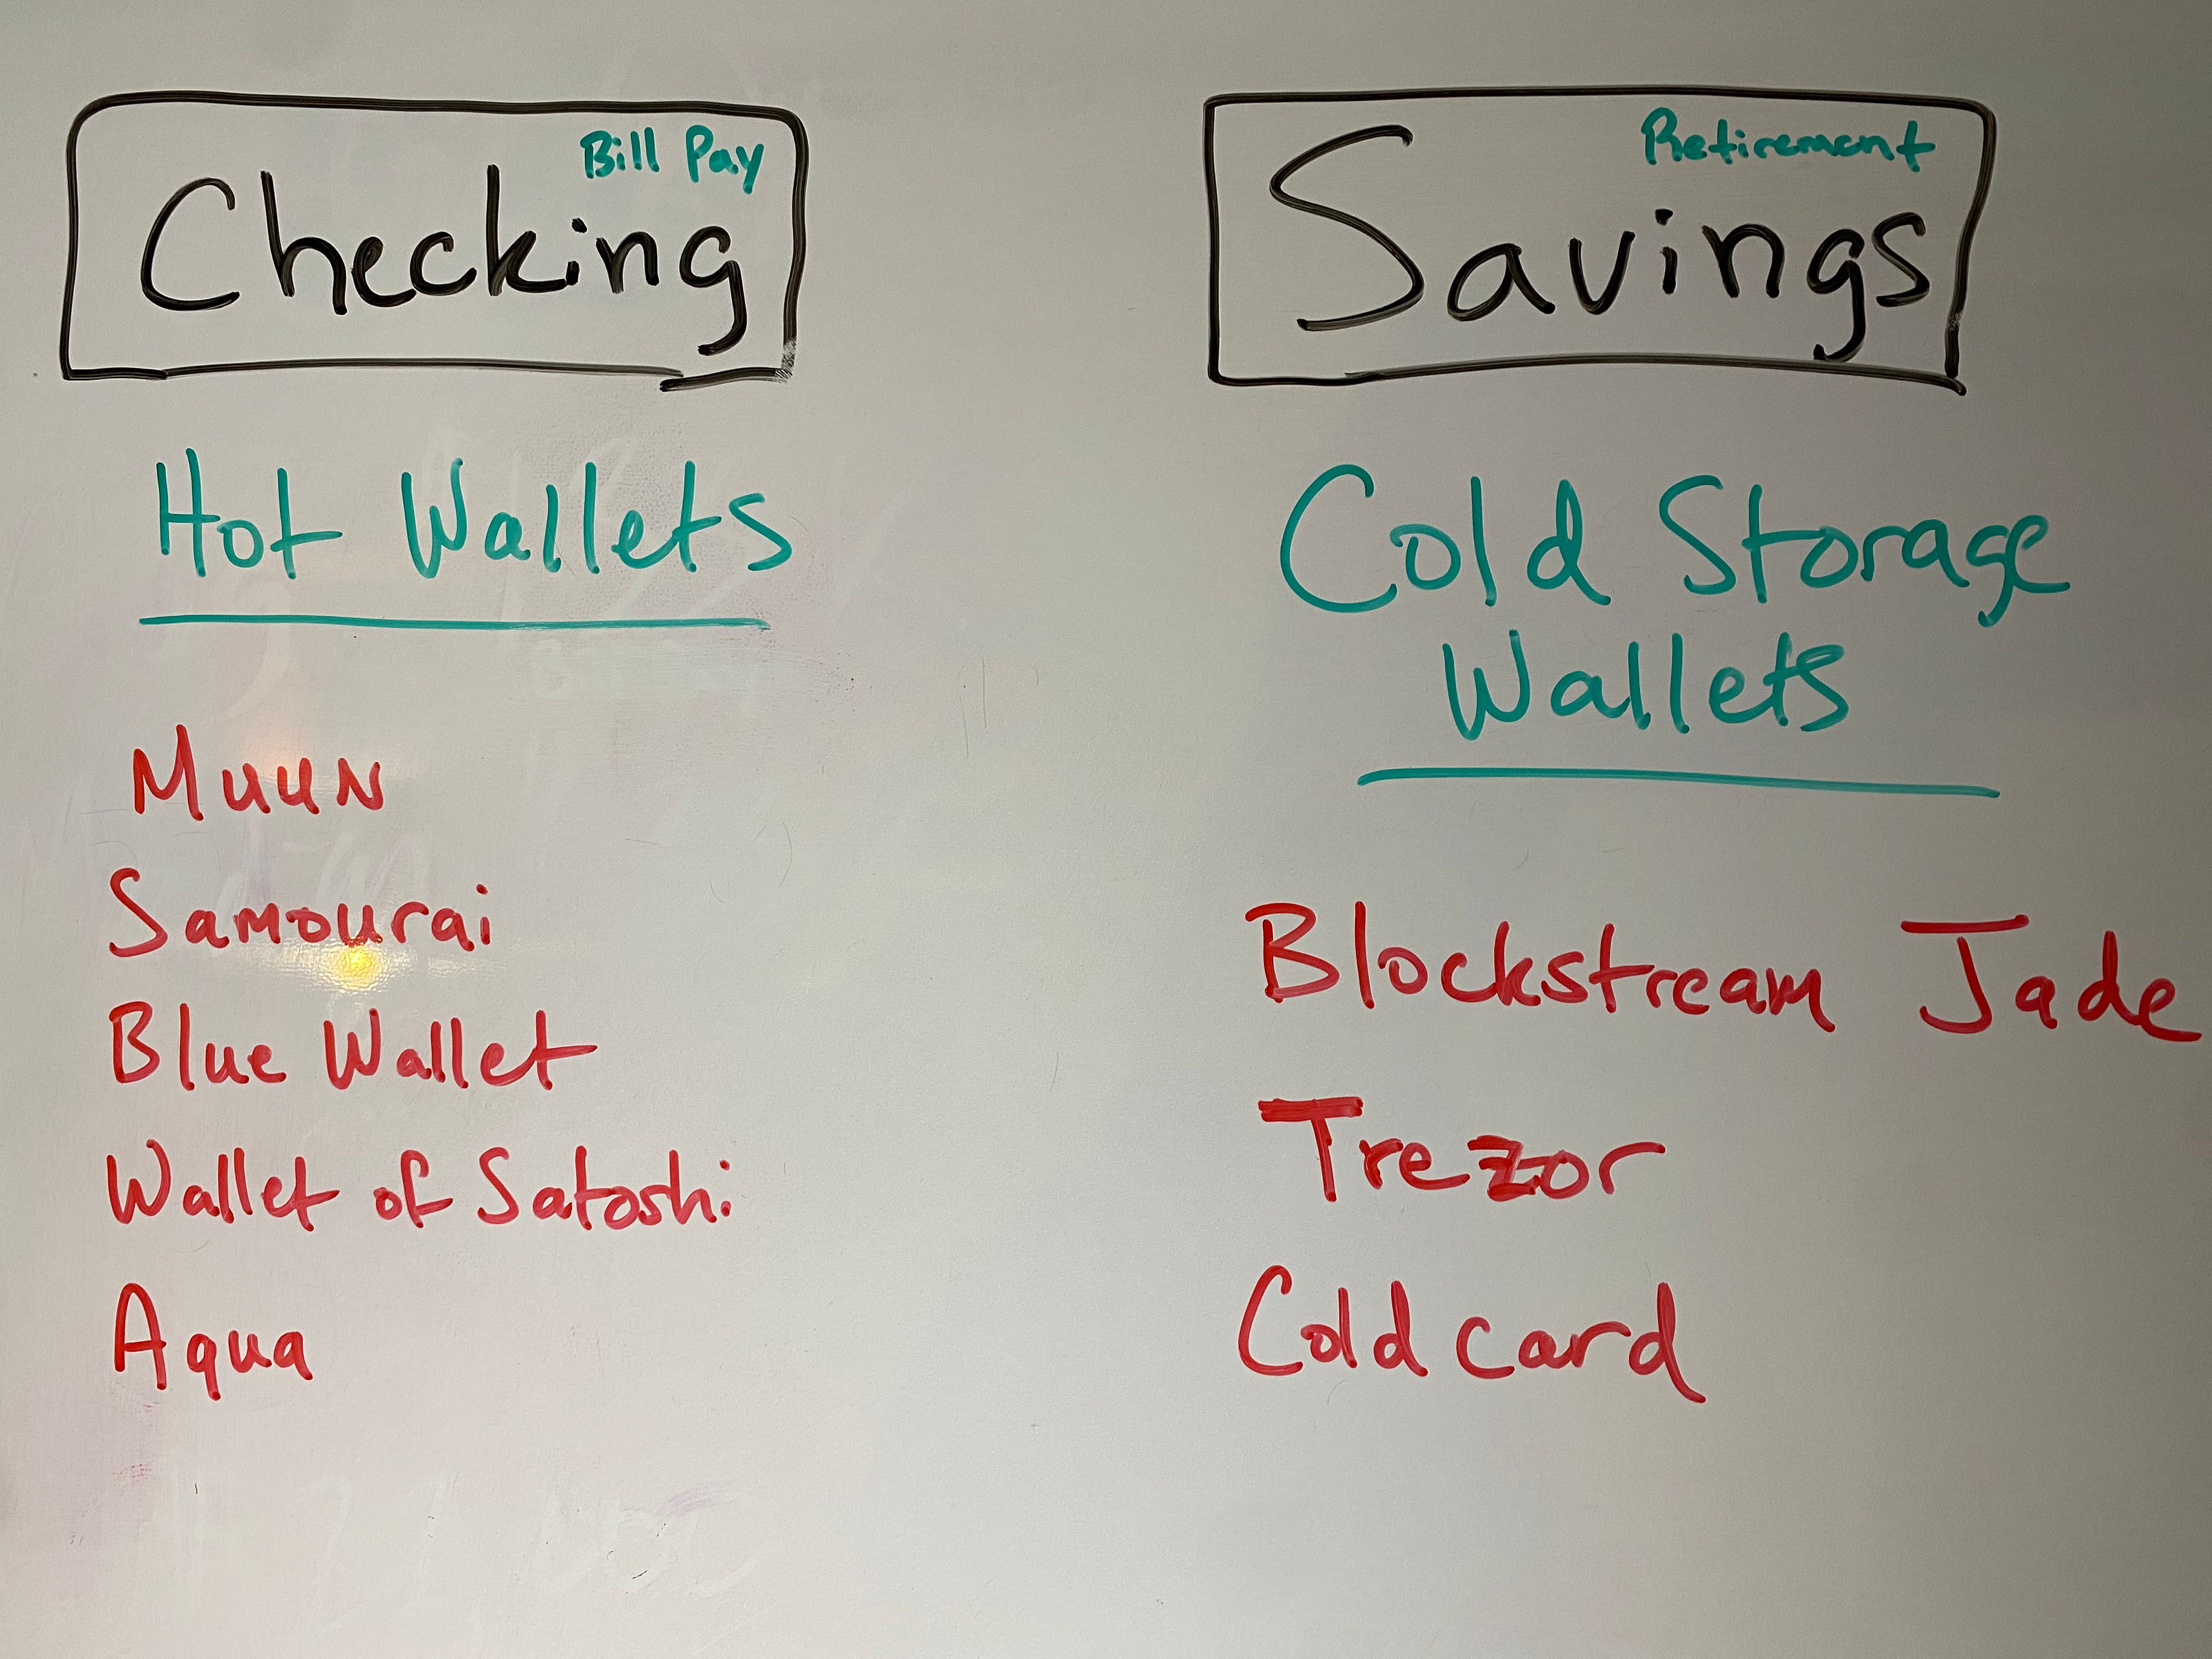 Bill Pay
Checking
Hot Wallets
Muun
Samourai
Blue Wallet
Wallet of Satoshi
Aqua
Retirement
Savings
Cold Storage
Wallets
Blockstream Jade
Trezor
Cold card